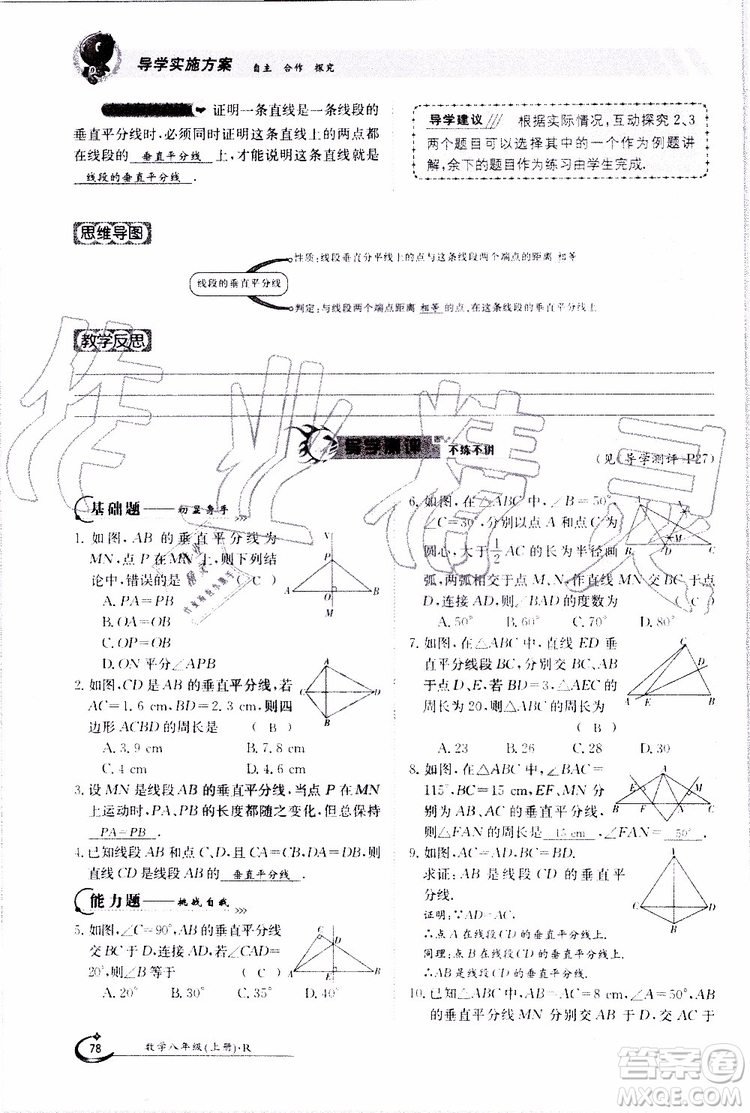 导学实施方案 自主 合作 探究
证明一条直线是一条线段的
垂直平分线时,必须同时证明这条直线上的两点都
在线段的 垂直平分线 上,才能说明这条直线就是
线段的垂直平分线 .
导学建议 根据实际情况,互动探究2、3
两个题目可以选择其中的一个作为例题讲
解,余下的题目作为练习由学生完成.
思维导图
性质:线段垂直分平线上的点与这条线段两个端点的距离 相等
线段的垂直平分线
判定:与线段两个端点距离 相等 的点,在这条线段的垂直平分线上
教学反思
导学测评 不练不讲
(见《导学测评》P27)
基础题
1. 如图,AB的垂直平分线为
MN,点P在MN上,则下列结
论中,错误的是 ( C )
A. PA=PB
B. OA=OB
C. OP=OB
D. ON平分∠APB
2. 如图,CD是AB的垂直平分线,若
AC=1.6 cm,BD=2.3 cm,则四
边形ACBD的周长是 ( B )
A. 3.9 cm B. 7.8 cm
C. 4 cm D. 4.6 cm
3. 设MN是线段AB的垂直平分线,当点P在MN
上运动时,PA、PB的长度都随之变化,但总保持
PA=PB .
4. 已知线段AB和点C、D,且CA=CB,DA=DB,则
直线CD是线段AB的 垂直平分线 .
能力题 挑战自我
5. 如图,∠C=90°,AB的垂直平分线
交BC于D,连接AD,∠CAD=
20°,则∠B等于 ( C )
A. 20° B. 30° C. 35° D. 40°
6. 如图,在△ABC中,∠B=50°,
∠C=30°,分别以点A和点C为
圆心,大于1/2AC的长为半径画
弧,两弧相交于点M、N,作直线MN,交BC于点
D,连接AD,则∠BAD的度数为 ( D )
A. 50° B. 60° C. 70° D. 80°
7. 如图,在△ABC中,直线ED垂
直平分线段BC,分别交BC、AB
于点D、点E,若BD=3,△AEC的
周长为20,则△ABC的周长为
( B )
A. 23 B. 26 C. 28 D. 30
8. 如图,在△ABC中,∠BAC=
115°,BC=15 cm,EF、MN分别
为AB、AC的垂直平分线,
则△FAN的周长是 15 cm ,∠FAN= 50° .
9. 如图,AC=AD,BC=BD.
求证:AB是线段CD的垂直平
分线.
证明:∵AD=AC,
∴点A在线段CD的垂直平分线上.
同理:点B在线段CD的垂直平分线上.
∴AB是线段CD的垂直平分线.
10. 已知△ABC中,AB=AC=8 cm,∠A=50°,
AB的垂直平分线MN分别交AB于D,交AC于
78 数学八年级(上册)·R